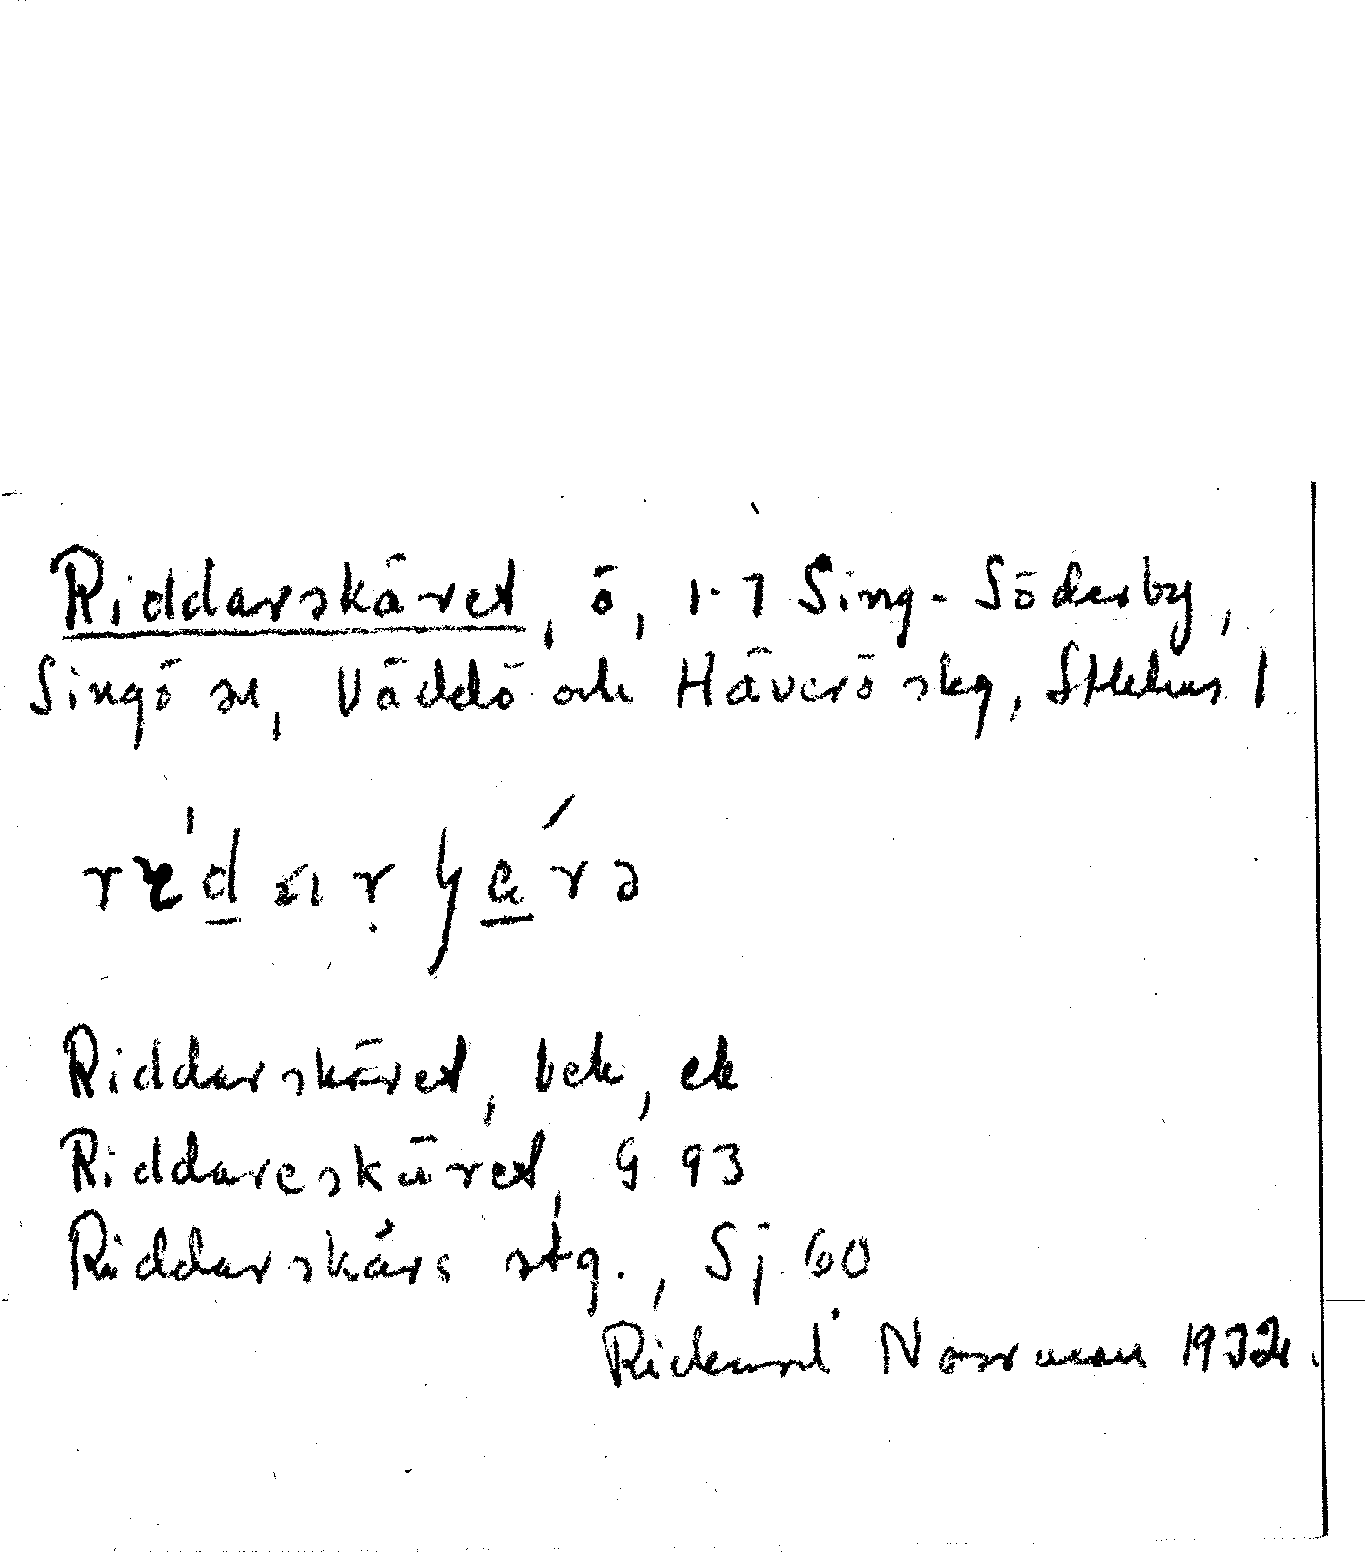 Riddarskäret, ö, 1-7 Sing-Söderby,
Singö sn, Väddö och Häverö skg, Sthlms l
Riddarskäret, bek, ek
Riddareskäret, G 93
Riddarskärs stg., Sj 60
Rickard Norrman 1932.